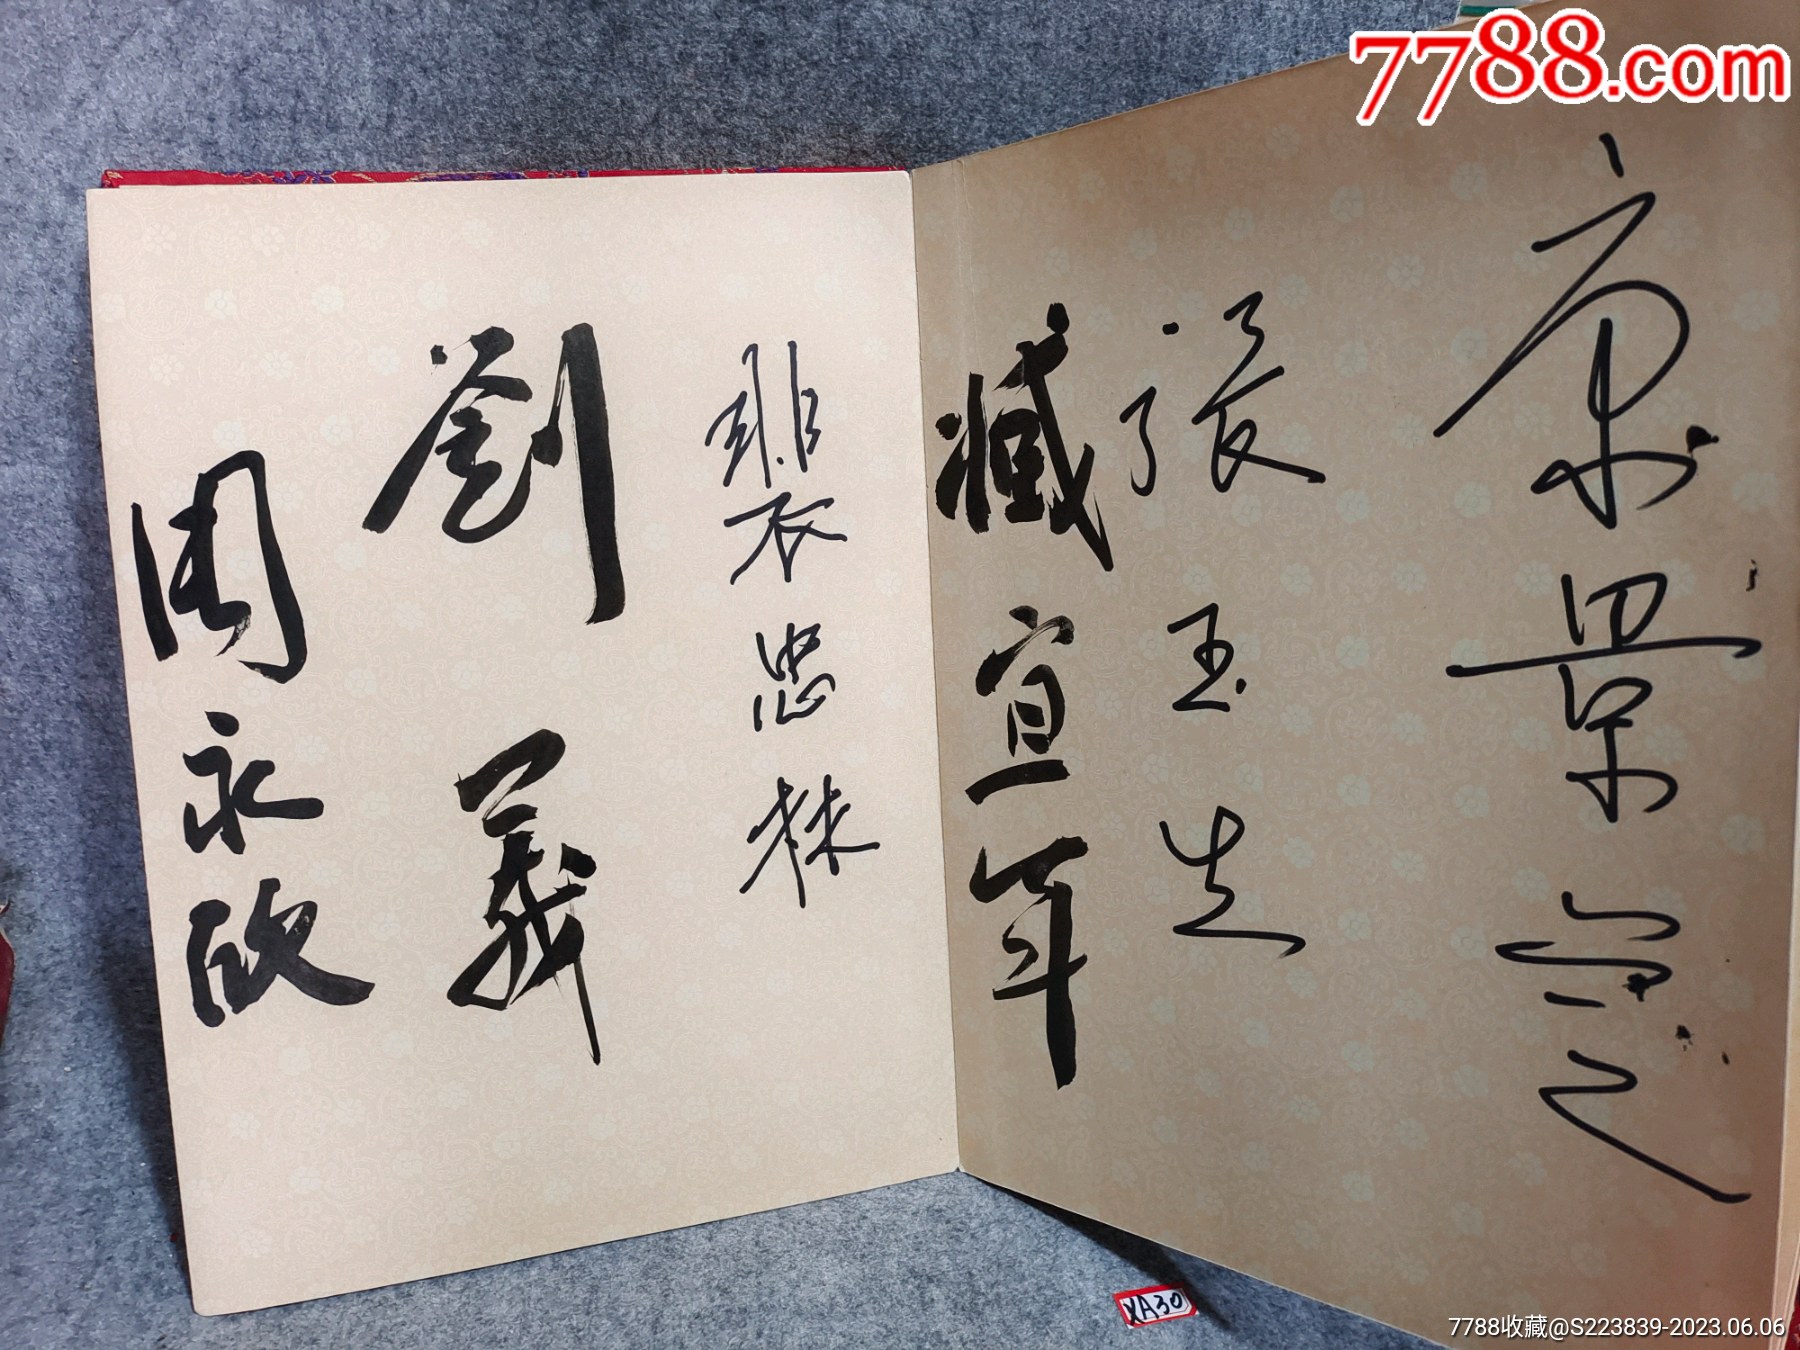 7788.com
康景宗
張玉生
臧宣軍
裴忠林
劉義
周永政
XA30
7788收藏@S223839-2023.06.06